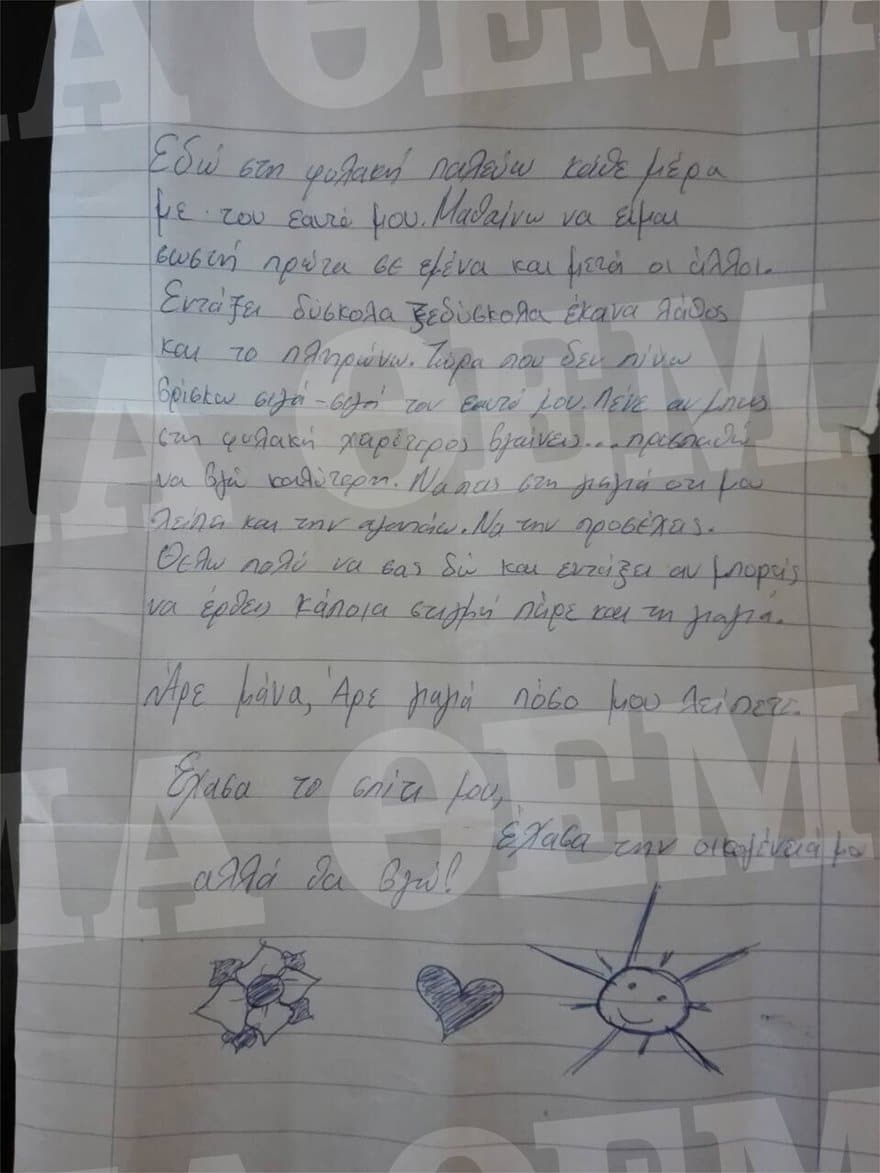 Εδώ στη φυλακή παλεύω κάθε μέρα
με τον εαυτό μου. Μαθαίνω να είμαι
σωστή πρώτα σε εμένα και μετά οι άλλοι.
Εντάξει δύσκολα ξεδύσκολα έκανα λάθος
και το πληρώνω. Τώρα που δεν πίνω
βρίσκω σιγά-σιγά τον εαυτό μου. Λένε αν μπεις
στη φυλακή χειρότερος βγαίνεις... προσπαθώ
να βγώ καλύτερη. Να πεις στη γιαγιά οτι μου
λείπει και την αγαπάω. Να την προσέχεις.
Θέλω πολύ να σας δώ και εντάξει αν μπορείς
να έρθεις κάποια στιγμή πάρε και τη γιαγιά.
Άρε μάνα, Άρε γιαγιά πόσο μου λείπετε.
Έχασα το σπίτι μου,
έχασα την οικογένειά μου
αλλά θα βγώ!
ΘΕΜΑ
ΘΕΜΑ
ΘΕΜΑ
ΘΕΜΑ